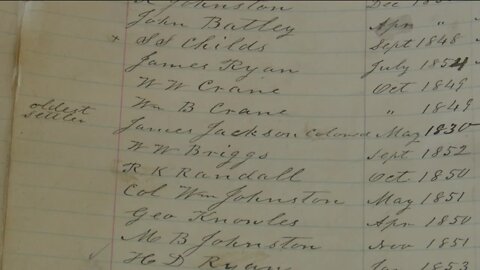 Johnston Dec
John Batley Apr "
x S S Childs Sept 1848
James Ryan July 1854
W W Crane Oct 1849
Wm B Crane " 1849
oldest settler James Jackson Colored May 1830
W W Briggs Sept 1852
R K Randall Oct 1850
Col Wm Johnston May 1851
Geo Knowles Apr 1850
M B Johnston Nov 1851
H D Ryan Jan 1853